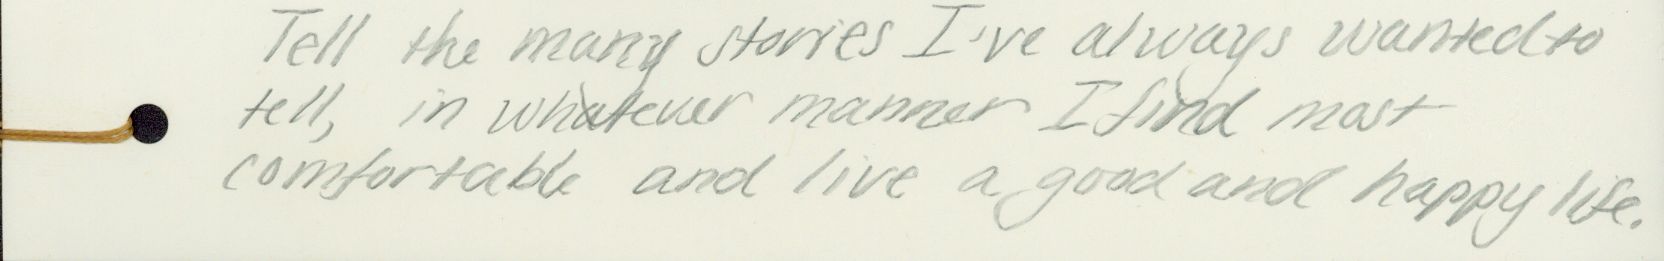 Tell the many stories I've always wanted to
tell, in whatever manner I find most
comfortable and live a good and happy life.